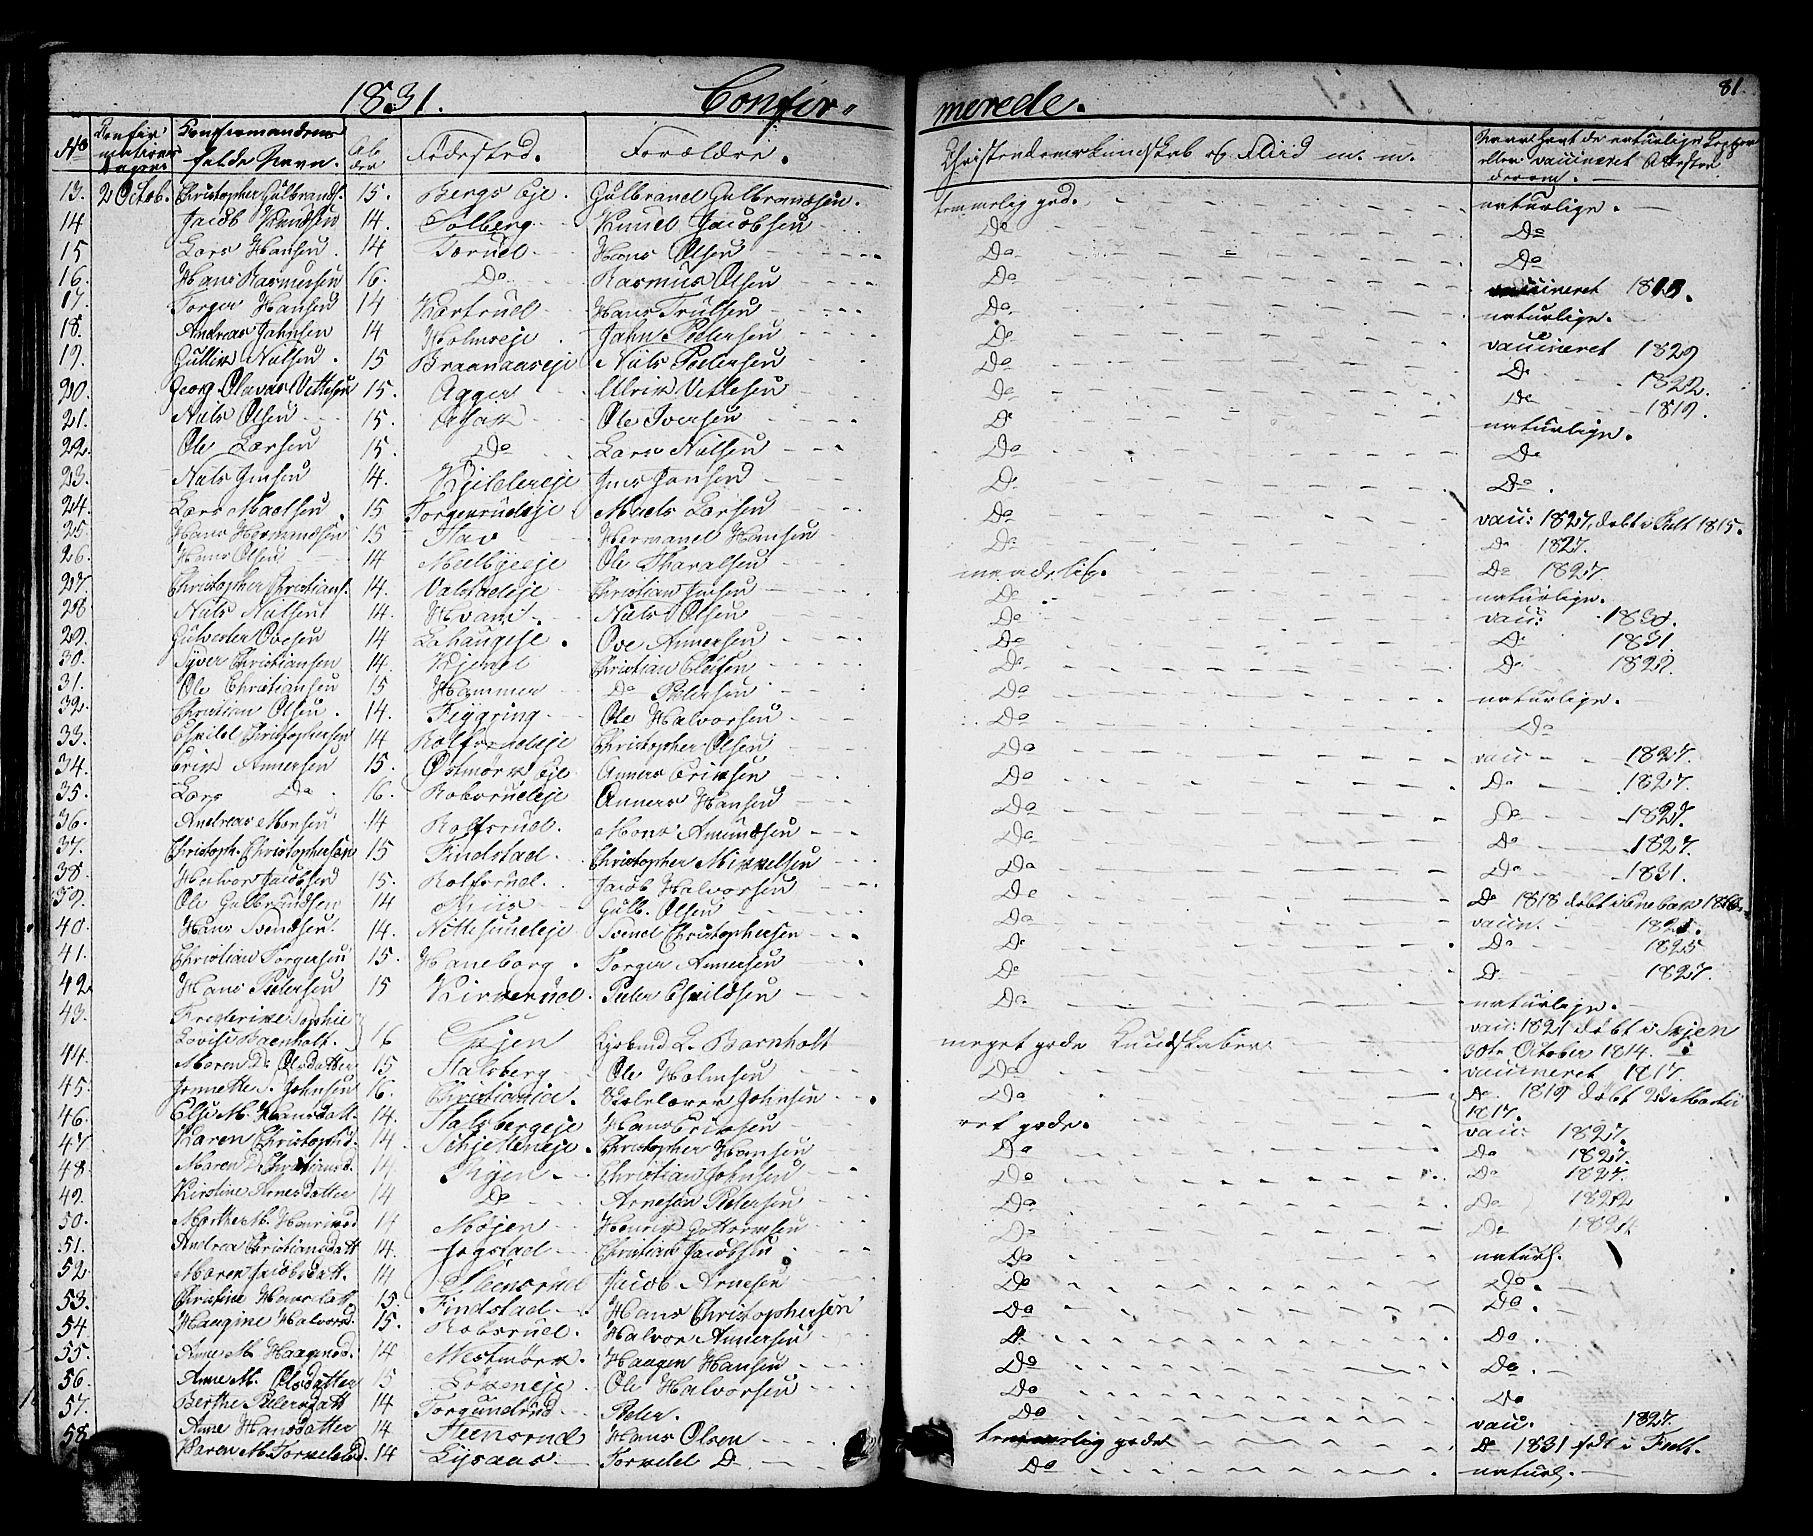 1831. Confir- merede. 81.
No Confirmations Dagen Confirmandens fulde Navn. Alder Fødested. Forældre. Christendoms kundskab og Fliid m. m. eller vaccineret Attesten derom.
13. 2 Octob. Christopher Gulbrands. 15. Bergs Eje. Gulbrand Gulbrandsen. temmelig god. naturlige.
14 Jacob Knudsen 14. Solberg Knud Jacobsen Do Do
15 Lars Hansen 14 Hans Olsen Do Do
16. Hans Rasmussen 16. Do Rasmus Olsen Do vaccineret
17. Torger Hansen 14 Hans Trulsen Do naturlige.
18. Andreas Jahnsen 14 Holmseje Jahn Pedersen Do vaccineret 1829
19. Gullik Nilsen 15 Braanaaseje Niels Pedersen Do D. 1822.
20. Georg Olavus Vittesen 15. Agger Ulrik Vittesen Do De 1819.
21. Niels Olsen 15. Ole Iversen D naturlige.
22. Ole Larsen 15. Do Lars Nilsen Do Do
23. Niels Jensen 14. Kjeldereje Jens Jansen Do Do.
24. Lars Madsen 15 Torgerrudeje Mads Larsen Do vacc: 1827, døbt i Fedt 1815.
25. Hans Hermandsen 15 Hav Hermand Hansen Do Do 1827.
26. Hans Olsen 14 Melbyeje Ole Tharalsen maadelig. Do 1827.
27. Christopher Christians. 14. Valstadeje Christian Jensen Do naturlige.
28 Niels Nilsen 14. Hvam Niels Olsen Do vacc: 1830.
29. Gulvester Ovesen 14 Lahaugeje. Ove Annersen Do D 1831.
30. Syver Christiansen 14. Christian Do D 1829.
31. Ole Christiansen 15 Hammer Do Pedersen Do naturlige.
32. Christian Olsen. 14. Figgring Ole Halvorsen Do Do
33. Christophersen 14 Rolfsrudeje Christopher Olsen Do vacc 1827.
34. Erik Annersen 15. Østmørk Eje Anners Eriksen Do Do 1827.
35. Lars Do 16. Robsrudeje Anners Hansen Do Do 1827.
36. Andreas Monsen 14 Rolfsrud. Mons Amundsen Do Do 1827.
37. Christoph. Christophersen 15 Findstad. Christopher Mikkelsen Do Do 1831.
38. Halvor Jacobsen 15. Rolfsrud. Jacob Halvorsen Do Do 1818 døbt i Enebak
39. Ole Gulbrandsen 14 Gulb. Olsen Do vaccin. 1825.
40. Hans Svendsen 14. Nittesundeje Svend Christophersen De Do 1825
41. Christian Torgersen 15. Haneborg. Torger Annersen De D 1827.
42. Hans Pedersen 15 Kirkerud. Peder Do naturlige.
43. Frederikke Sophie vacc: 1821 døbt i Skjen
Lovise Barnholt. 16 Skjen L. Barnholt meget gode Kundskaber 30te October 1814.
44. Maren D. Olsdatter 15 Stalsberg Ole Holmsen Do vaccineret 1817.
45. Jonnette Johnsen 16. Christiania. Johnsen Do D. 1819 døbt
1817.
46. Else M. Hansdatt. 14. Stalsbergeje Hans Eriksen ret gode. vacc: 1827.
47 Karen Christophd. 14. Schjetteneje Christopher Hansen Do Do 1827.
48. Maren D. Christiansd. 14 Skjen Christian Johnsen Do Do 1827.
49. Kirstine Arnesdatter 14 Do Arnesen Pedersen Do Do 1822
50. Marthe M. Henriksd 14 Møjen Henrik Guttormsen Do De
51. Andrea Christiansdatt 14. Jogstad Christian Jacobsen Do naturl.
52 Maren Jacobsdatt. 14 Steensrud Jacob Arnesen Do Do.
53. Christine Hansdatt 15. Findstad Hans Christophersen Do Do.
54 Haagine Halvorsd. 15. Robsrud. Halvor Annersen D Do
55. Anne M. Haagensd. 14 Westmørk. Haagen Hansen Do Do
56. Anne M. Olsdatter 15 Ole Halvorsen Do Do
57. Berthe Pedersdatt 14 Torgundrud Peder. Do vacc. 1827.
58. Anne Hansdatter 14 Steensrud Hans Olsen temmelig gode Do 1831 født i Fedt.
Karen M. 14 Lysaas D. Do naturl.